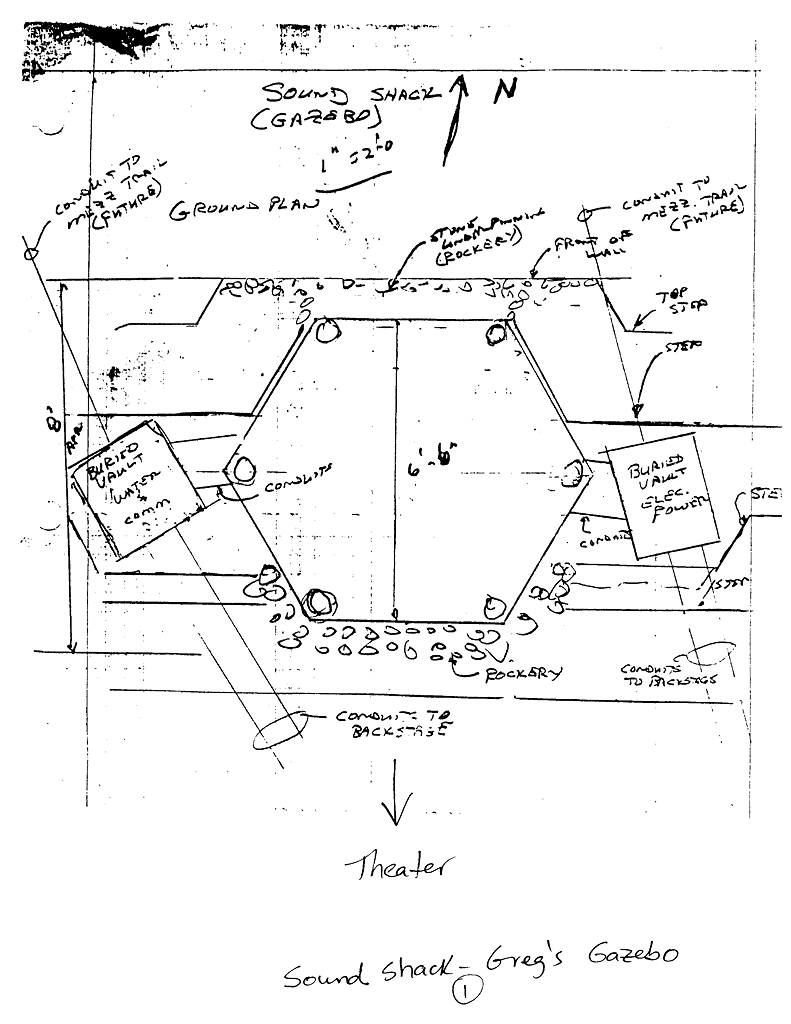 SOUND SHACK
(GAZEBO)
N
1" = 2'-0
GROUND PLAN
CONDUIT TO
MEZZ TRAIL
(FUTURE)
STONE
UNDERPINNING
(ROCKERY)
FRONT OF
WALL
CONDUIT TO
MEZZ. TRAIL
(FUTURE)
TOP
STEP
STEP
8'
APR.
6'-6"
BURIED
VAULT
WATER
+
COMM
CONDUITS
BURIED
VAULT
ELEC.
POWER
CONDUIT
STE
STEP
ROCKERY
CONDUITS
TO BACKSTAGE
CONDUIT TO
BACKSTAGE
Theater
Sound Shack - Greg's Gazebo
1